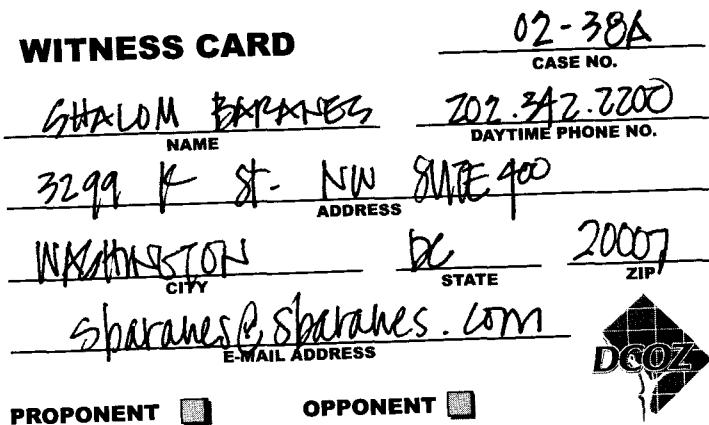 02-38A
WITNESS CARD
CASE NO.
SHALOM BARANES 202.342.2200
NAME DAYTIME PHONE NO.
3299 K St. NW SUITE 400
ADDRESS
WASHINGTON DC 20007
CITY STATE ZIP
sbaranes@sbaranes.com
E-MAIL ADDRESS
DCOZ
PROPONENT OPPONENT